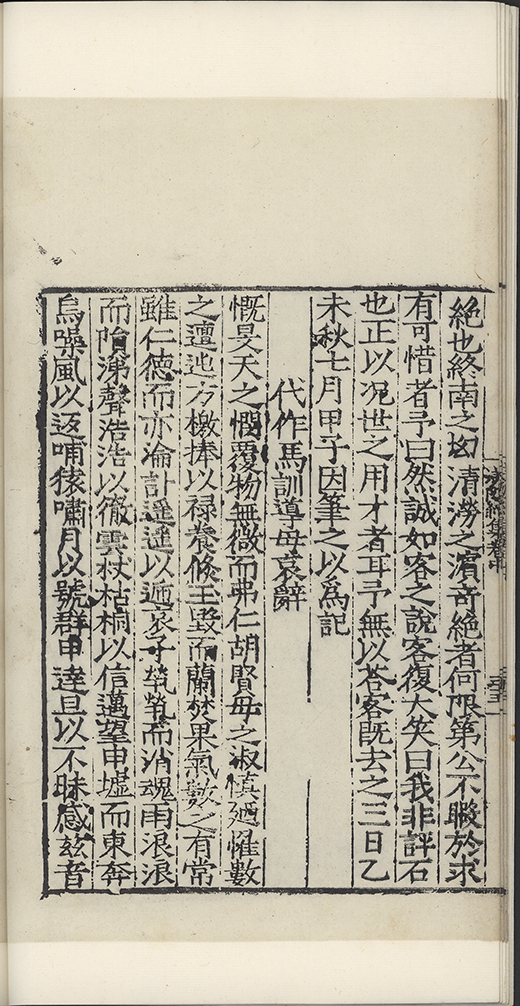 絶也終南之㘭清澇之濵奇絶者何限第公不暇於求
有可惜者予曰然誠如客之說客復大笑曰我非評石
也正以况世之用才者耳予無以荅客既去之三日乙
未秋七月甲子因筆之以爲記
代作馬訓導母哀辭
慨旻天之憫覆物無微而弗仁胡賢母之淑慎廼罹數
之邅迍方檄捧以禄養倐玉毀而蘭焚果氣數之有常
雖仁德而亦淪計遥遥以遄哀子煢煢而消魂雨浪浪
而隕涕聲浩浩以徹雲杖枯桐以信邁望申墟而東奔
烏噪風以返哺猿嘯月以號群申達旦以不昧感兹音